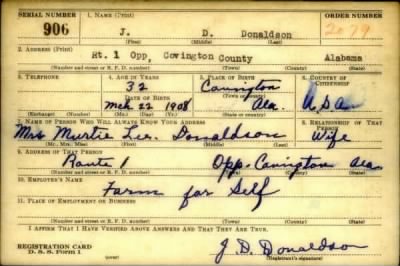 SERIAL NUMBER 1. NAME (Print) ORDER NUMBER
906 J. D. Donaldson 2079
(First) (Middle) (Last)
2. ADDRESS (Print)
Rt. 1 Opp, Covington County Alabama
(Number and street or R. F. D. number) (Town) (County) (State)
3. TELEPHONE 4. AGE IN YEARS 5. PLACE OF BIRTH 6. COUNTRY OF CITIZENSHIP
32 Covington
DATE OF BIRTH (Town or county)
Mch. 22 1908 Ala. U.S.A.
(Exchange) (Number) (Mo.) (Day) (Yr.) (State or country)
7. NAME OF PERSON WHO WILL ALWAYS KNOW YOUR ADDRESS 8. RELATIONSHIP OF THAT PERSON
Mrs Murtie Lee Donaldson Wife
(Mr., Mrs., Miss) (First) (Middle) (Last)
9. ADDRESS OF THAT PERSON
Route 1 Opp. Covington Ala.
(Number and street or R. F. D. number) (Town) (County) (State)
10. EMPLOYER'S NAME
Farm for Self
11. PLACE OF EMPLOYMENT OR BUSINESS
(Number and street or R. F. D. number) (Town) (County) (State)
I AFFIRM THAT I HAVE VERIFIED ABOVE ANSWERS AND THAT THEY ARE TRUE.
REGISTRATION CARD
D. S. S. Form 1 J. D. Donaldson
(Registrant's signature)